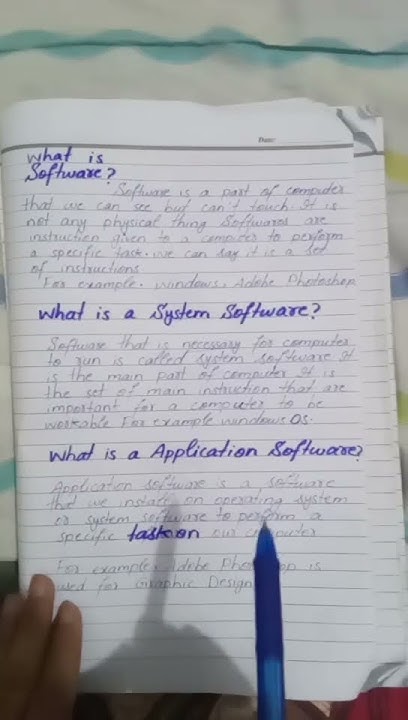 Date:
What is
Software?
Software is a part of computer
that we can see but can't touch. It is
not any physical thing Softwares are
instruction given to a computer to perform
a specific task. we can say it is a set
of instructions
For example. windows, Adobe Photoshop
What is a System Software?
Software that is necessary for computer
to run is called system software It
is the main part of computer It is
the set of main instruction that are
important for a computer to be
workable For example windows OS.
What is a Application Software?
Application software is a software
that we install on operating system
or system software to perform a
specific task on our computer
For example Adobe Photoshop is
used for Graphic Design